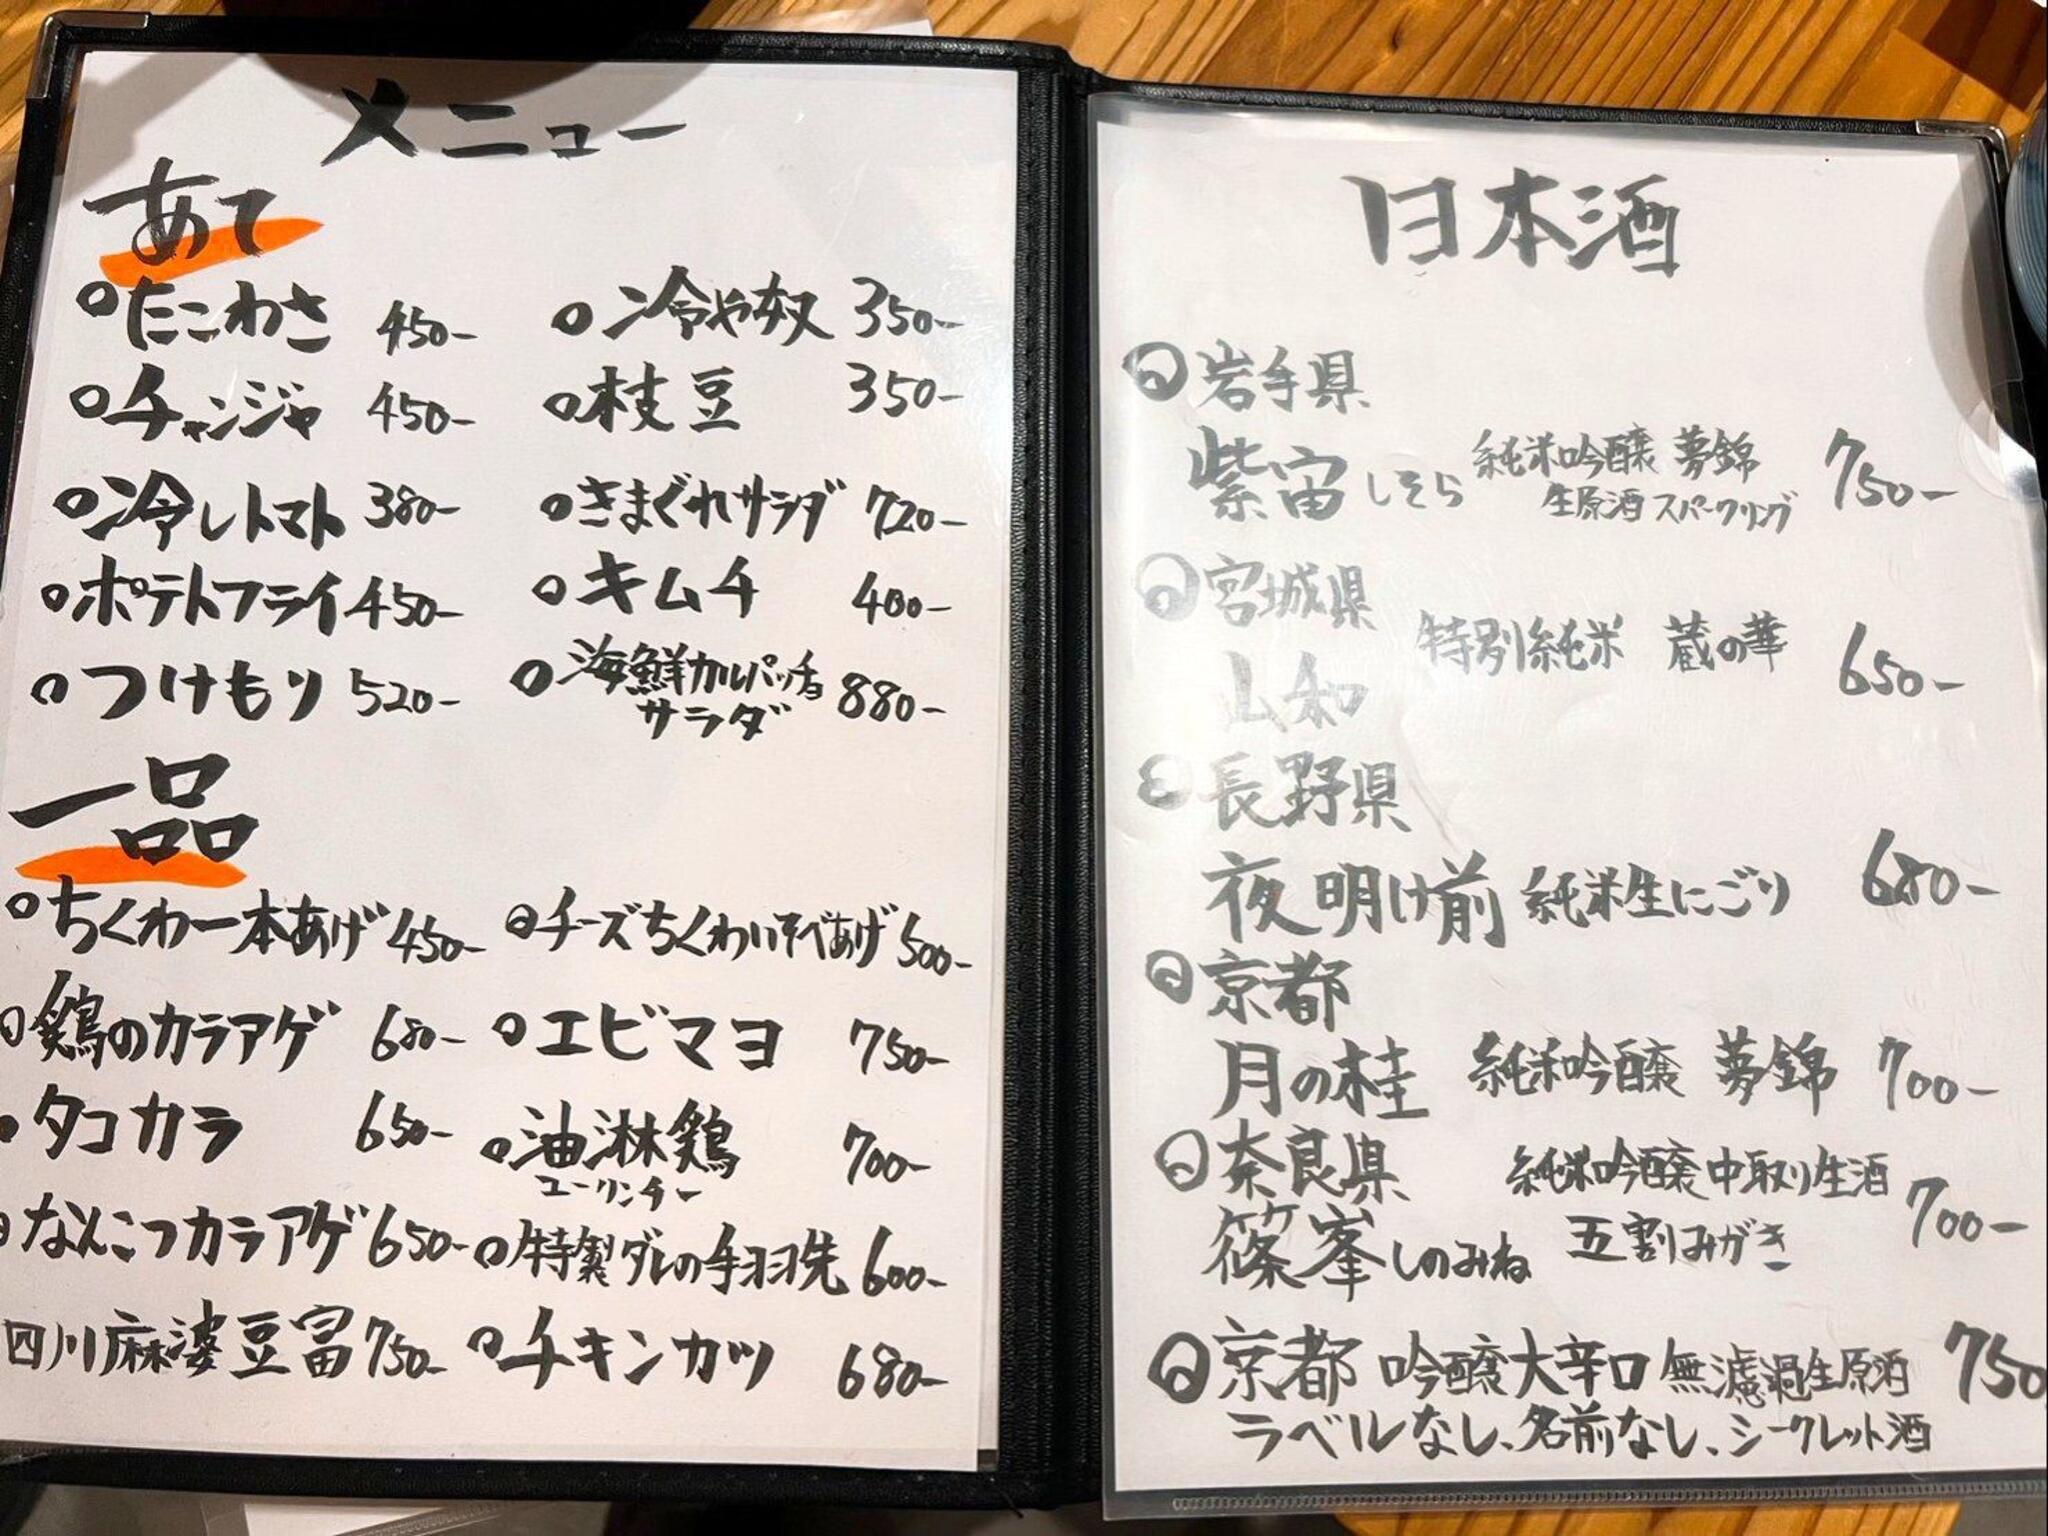 メニュー
あて
たこわさ 450-
冷や奴 350-
チャンジャ 450-
枝豆 350-
冷しトマト 380-
きまぐれサラダ 720-
ポテトフライ 450-
キムチ 400-
つけもり 520-
海鮮カルパッチョ
サラダ 880-
一品
ちくわ一本あげ 450-
チーズちくわいそべあげ 500-
鶏のカラアゲ 680-
エビマヨ 750-
タコカラ 650-
油淋鶏 700-
ユーリンチー
なんこつカラアゲ 650-
特製ダレの手羽先 600-
四川麻婆豆富 750-
チキンカツ 680-
日本酒
岩手県
紫宙 しそら 純米吟醸 夢錦 750-
生原酒 スパークリング
宮城県
山和 特別純米 蔵の華 650-
長野県
夜明け前 純米生にごり 680-
京都
月の桂 純米吟醸 夢錦 700-
奈良県 純米吟醸中取り生酒
篠峯 しのみね 五割みがき 700-
京都 吟醸大辛口 無濾過生原酒 750
ラベルなし、名前なし、シークレット酒